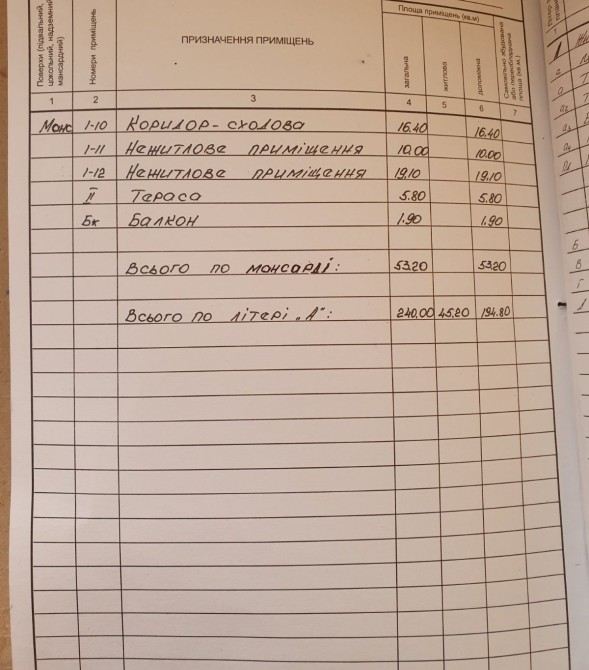 Поверхи (підвальний, цокольний, надземний, мансардний)
Номери приміщень
ПРИЗНАЧЕННЯ ПРИМІЩЕНЬ
Площа приміщень (кв.м)
загальна
житлова
допоміжна
Самовільно збудована або переобладнана площа (кв.м.)
1 2 3 4 5 6 7
Манс 1-10 Коридор-сходова 16.40 16.40
1-11 Нежитлове приміщення 10.00 10.00
1-12 Нежитлове приміщення 19.10 19.10
ІІ Тераса 5.80 5.80
Бк Балкон 1.90 1.90
Всього по мансарді: 53.20 53.20
Всього по літері „А": 240.00 45.20 194.80